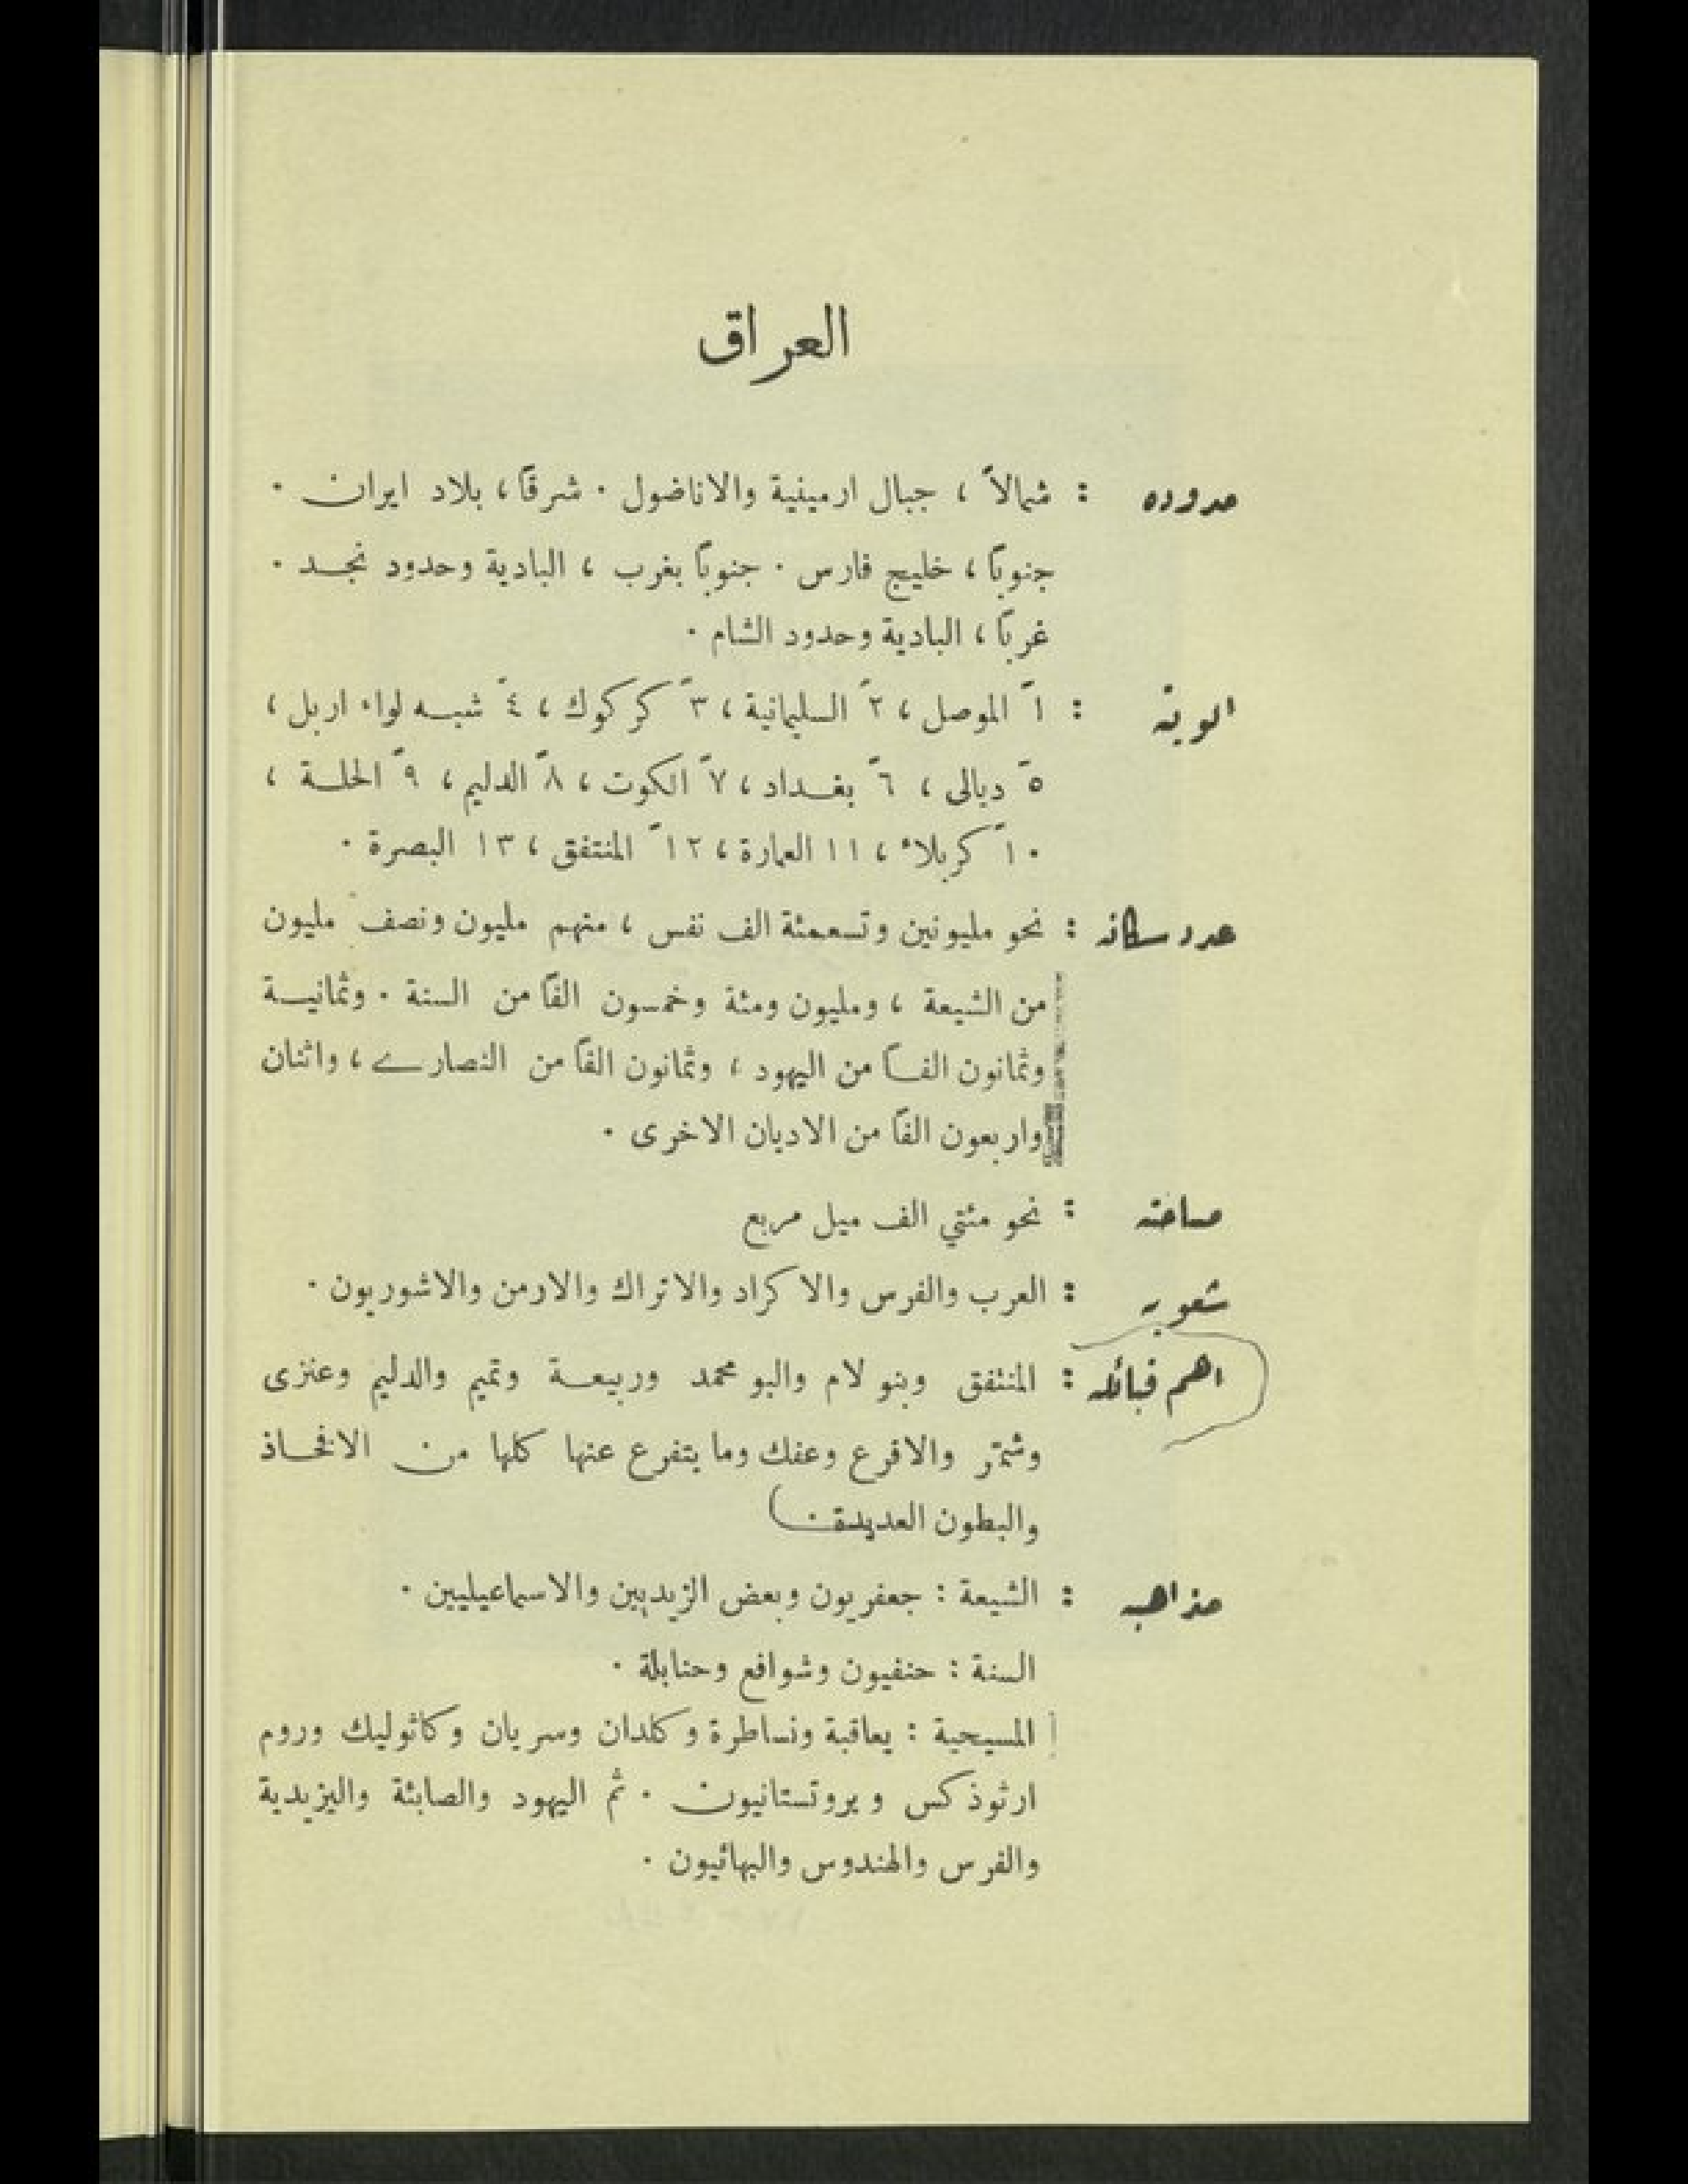 العراق
حدوده : شمالاً ، جبال ارمينية والاناضول . شرقاً ، بلاد ايران .
جنوباً ، خليج فارس . جنوباً بغرب ، البادية وحدود نجد .
غرباً ، البادية وحدود الشام .
الويته : ١ً الموصل ، ٢ً السليمانية ، ٣ً كركوك ، ٤ً شبه لواء اربل ،
٥ً ديالى ، ٦ً بغداد ، ٧ً الكوت ، ٨ً الدليم ، ٩ً الحلة ،
١٠ً كربلاء ، ١١ العمارة ، ١٢ً المنتفق ، ١٣ البصرة .
عدد سكانه : نحو مليونين وتسعمئة الف نفس ، منهم مليون ونصف مليون
من الشيعة ، ومليون ومئة وخمسون الفاً من السنة . وثمانية
وثمانون الفاً من اليهود ، وثمانون الفاً من النصارى ، واثنان
واربعون الفاً من الاديان الاخرى .
مساحته : نحو مئتي الف ميل مربع
شعوبه : العرب والفرس والاكراد والاتراك والارمن والاشوريون .
اهم قبائله : المنتفق وبنو لام والبو محمد وربيعة وتميم والدليم وعنزى
وشمّر والاقرع وعفك وما يتفرع عنها كلها من الافخاذ
والبطون العديدة .)
مذاهبه : الشيعة : جعفريون وبعض الزيديين والاسماعيليين .
السنة : حنفيون وشوافع وحنابلة .
المسيحية : يعاقبة ونساطرة وكلدان وسريان وكاثوليك وروم
ارثوذكس وبروتستانيون . ثم اليهود والصابئة واليزيدية
والفرس والهندوس والبهائيون .